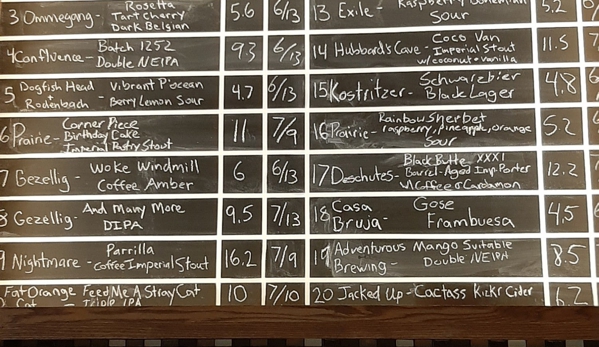 3 Ommegang - Rosetta
Tart Cherry
Dark Belgian
5.6 6/13
4 Confluence - Batch 1252
Double NEIPA
9.3 6/13
5 Dogfish Head + Rodenbach - Vibrant P'ocean
Berry Lemon Sour
4.7 6/13
6 Prairie - Corner Piece
Birthday Cake
Imperial Pastry Stout
11 7/9
7 Gezellig - Woke Windmill
Coffee Amber
6 6/13
8 Gezellig - And Many More
DIPA
9.5 7/13
9 Nightmare - Parrilla
Coffee Imperial Stout
16.2 7/9
Fat Orange Cat - Feed Me A Stray Cat
Triple IPA
10 7/10
13 Exile - Raspberry Bohemian
Sour
5.2
14 Hubbard's Cave - Coco Van
Imperial Stout
w/coconut + vanilla
11.5
15 Kostritzer - Schwarzbier
Black Lager
4.8
16 Prairie - Rainbow Sherbet
raspberry, pineapple, orange
Sour
5.2
17 Deschutes - Black Butte XXXI
Barrel-Aged Imp. Porter
w/ Coffee & Cardamon
12.2
18 Casa Bruja - Gose
Frambuesa
4.5
19 Adventurous Brewing - Mango Suitable
Double NEIPA
8.5
20 Jacked Up - Cactass Kickr Cider
6.2